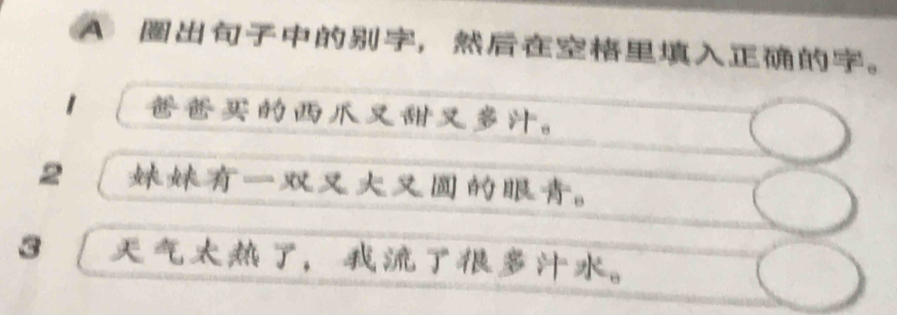 A 圈出句子中的别字，然后在空格里填入正确的字。
1 爸爸买的西爪又甜又多汁。
2 妹妹有一双又大又圆的眼青。
3 天气太热了，我流了很多汁水。